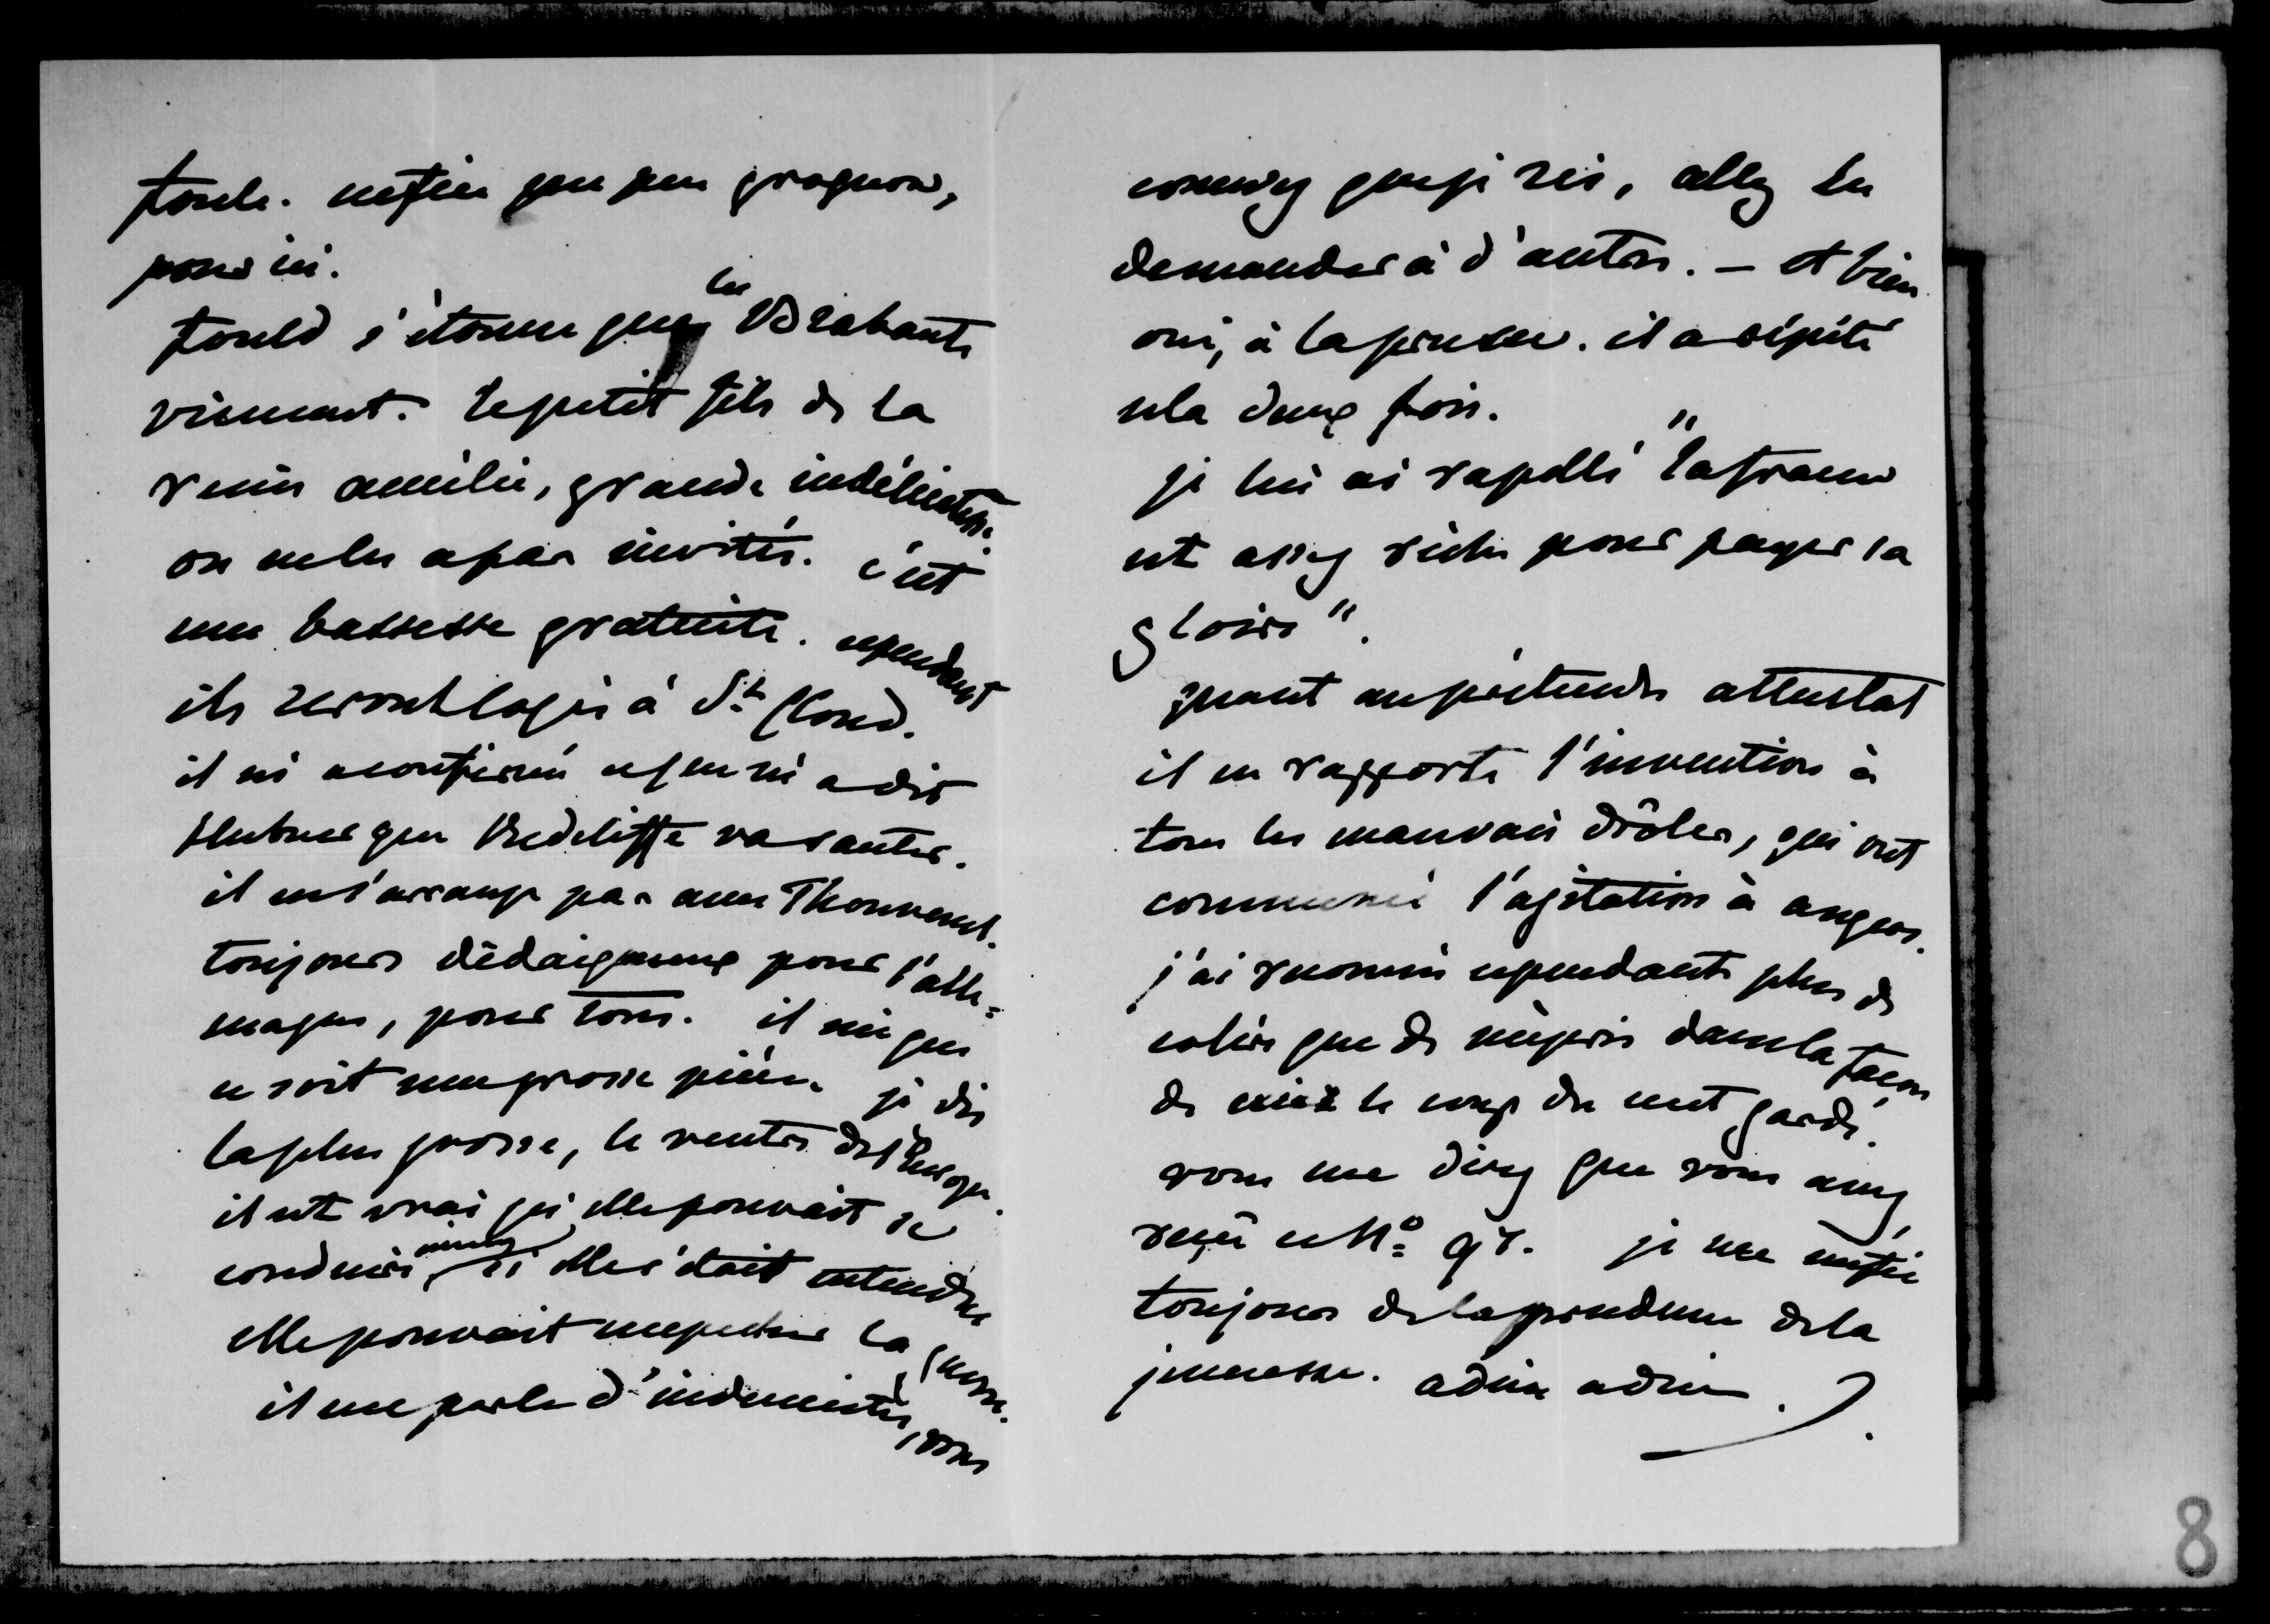 foule. mefiez que peu grognon,
pour ici.
fould s'étonne que les Brabants
viennent. le petit fils de la
reine amélie, grande indélicatesse.
on ne les a pas invités. c'est
une bassesse gratuite. cependant
ils seront logés à St Cloud.
il m'a confirmé ce que m'a dit
Hubner que Redcliffe va sauter.
il ne s'arrange pas avec Thouvenel.
toujours dédaigneux pour l'alle=
magne, pour tous. il nie que
ce soit une grosse pièce. je dis
la plus grosse, le ventre de l'Europe.
il est vrai qu'elle pouvait se
conduire mieux, si elle s'était entendue
elle pouvait empecher la guerre.
il me parle d'indemnités, vous
comprenez que je ris, allez les
demander à d'autres. - et bien
oui, à la prusse. il a répété
cela deux fois.
je lui ai rapellé "la france
est assez riche pour payer sa
gloire".
quant au prétendu attentat
il en rapporte l'invention à
tous les mauvais drôles, qui ont
commencé l'agitation à angers.
j'ai reconnu cependant plus de
colère que de mépris dans la façon
de le coup du cent garde.
vous me direz que vous avez
reçu ce No 98. je me mefie
toujours de la prudence de la
jeunesse. adieu adieu.